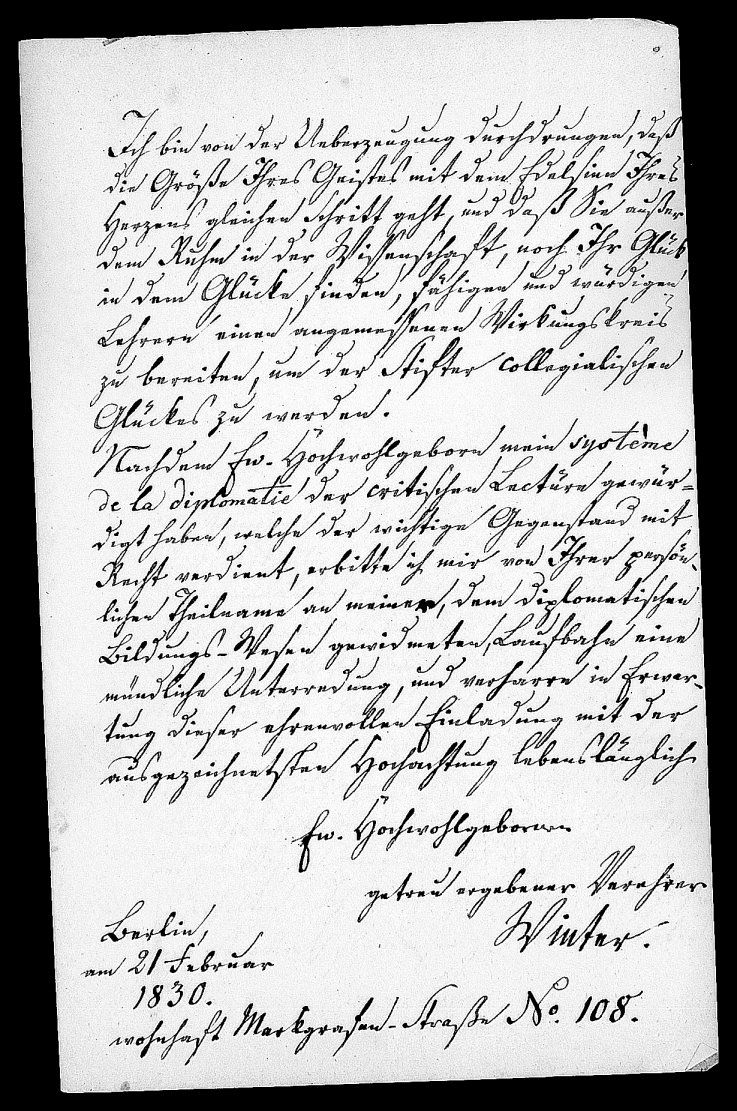 Ich bin von der Ueberzeugung durchdrungen, daß
die Größe Ihres Geistes mit dem Edelsinn Ihres
Herzens gleichen Schritt geht, und daß Sie außer
dem Ruhm in der Wissenschaft, noch Ihr Glück
in dem Glücke finden, fähigen und würdigen
Lehrern einen angemessenen Wirkungskreis
zu bereiten, um der Stifter collegialischen
Glückes zu werden.
Nachdem Ew. Hochwohlgeborn mein système
de la diplomatie der critischen Lectüre gewür=
digt haben, welche der wichtige Gegenstand mit
Recht verdient, erbitte ich mir von Ihrer persön-
lichen Theilname an meiner, dem diplomatischen
Bildungs-Wesen gewidmeten, Laufbahn eine
mündliche Unterredung, und verharre in Erwar-
tung dieser ehrenvollen Einladung mit der
ausgezeichnetsten Hochachtung lebenslänglich
Ew. Hochwohlgeboren
getreu ergebener Verehrer
Winter.
Berlin,
am 21 Februar
1830.
wohnhaft Markgrafen-Straße No. 108.